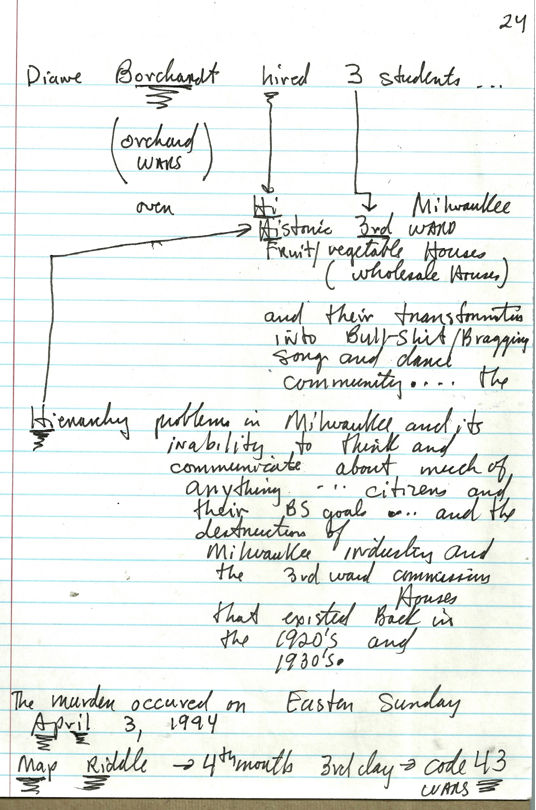 24
Diane Borchardt hired 3 students ...
(orchard
WARS)
over Hi Milwaukee
Historic 3rd WARD
Fruit/vegetable Houses
(wholesale Houses)
and their transformation
into Bull-Shit/Bragging
song and dance
community .... the
Hierarchy problems in Milwaukee and its
inability to think and
communicate about much of
anything ... citizens and
their BS goals .... and the
destruction of
Milwaukee industry and
the 3rd ward commission
Houses
that existed Back in
the 1920's and
1930's.
The murder occured on Easter Sunday
April 3, 1994
Map Riddle → 4th month 3rd day → code 43
WARS